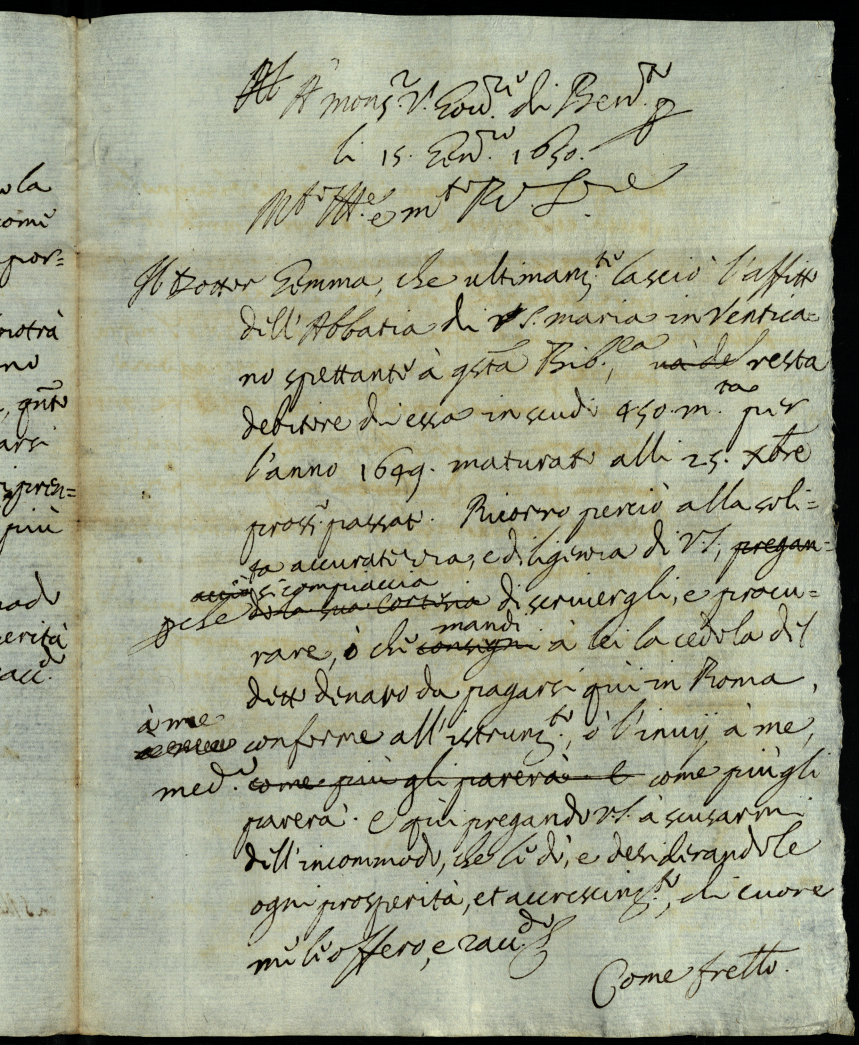 A mons.r V. Gov.re di Benev.to
li 15. Gen.ro 1650.
M.to Ill.e e m.to R.do
Il Dotter Gemma, che ultimam.te lasciò l'affitto
dell'Abbatia di S. maria in Ventica=
no spettante à qsta Bib.ca, và de resta
debitore di essa in scudi 450. m.ta per
l'anno 1649. maturati alli 25. Xbre
pross.o passato. Ricorro perciò alla soli=
ta accuratezza, e diligenza di V.S. pregan=
acciò si compiaccia
pche dola sua Cortesia di scrivergli, e procu=
mandi
rare, ò che consegni à lei la cedola del
detto denaro da pagarsi quì in Roma,
à me
conforme all'istrum.to, ò l'invij à me,
med.o come più gli parerà e come più gli
parerà. e quì pregando V.S. à scusarmi
dell'incommodo, che le dò, e desiderandole
ogni prosperità, et accrescim.to, di cuore
mi le offero, e racc.do
Come fretto.
la
comi
por=
potrà
no
arsi
più